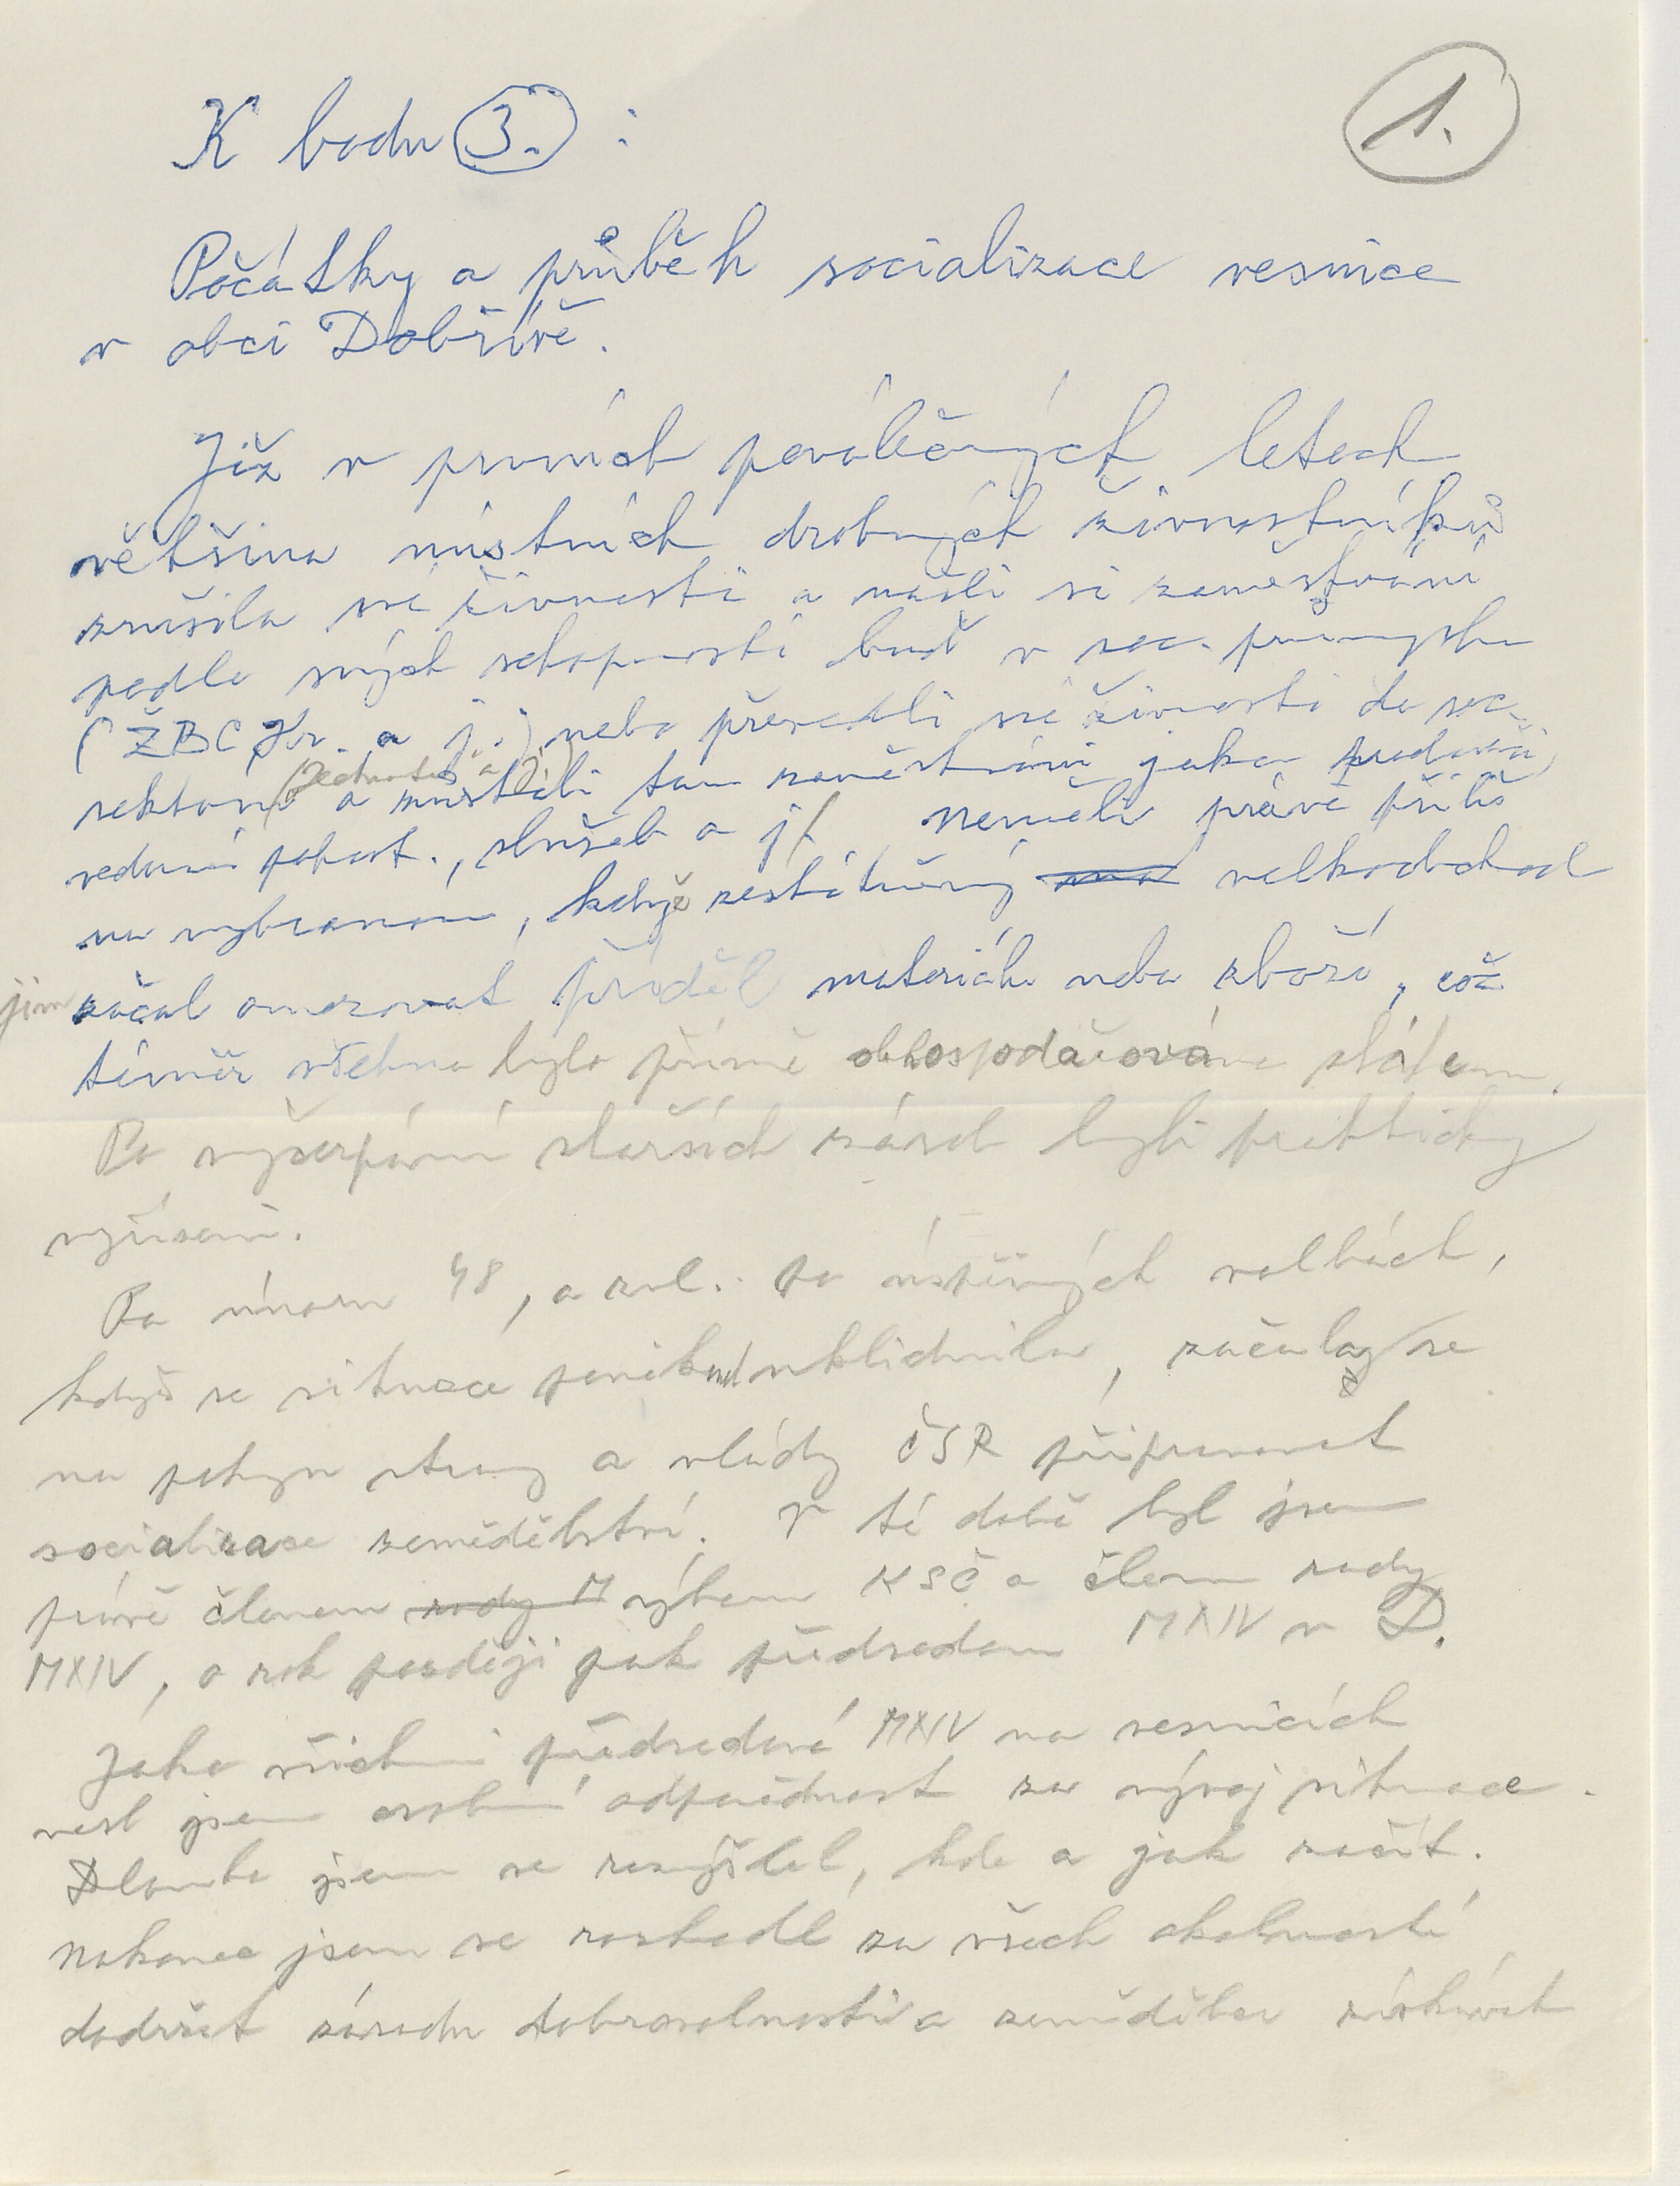 1.
K bodu 3. :
Počátky a průběh socializace vesnice
v obci Dobřívě.
Již v prvních poválečných letech
většina místních drobných živnostníků
zrušila své živnosti a našli si zaměstnání
podle svých schopností buď v soc. průmyslu
(ŽBC Hr. a j.) nebo převedli své živnosti do soc.
(Jednota a j.)
sektoru a zůstali tam zaměstnáni jako prodavači,
vedoucí pohost., služeb a j. Neměli právě příliš
na vybranou, když zestátněný velkoobchod
jim začal omezovat příděl materiálu nebo zboží, což
téměř všechno bylo přímě obhospodařováno státem.
Po vyčerpání starších zásob byli prakticky
vyřízeni.
Po únoru 48, a zvl. po úspěšných volbách,
když se situace poněkud uklidnila, začala se
na pokyn strany a vlády ČSR připravovat
socializace zemědělství. V té době byl jsem
právě členem rady M výboru KSČ a členem rady
MNV, o rok později pak předsedou MNV v D.
Jako všichni předsedové MNV na vesnicích
nesl jsem osobní odpovědnost za vývoj situace.
Dlouho jsem se rozmýšlel, kde a jak začít.
Nakonec jsem se rozhodl za všech okolností
dodržet zásadu dobrovolnosti a zemědělce získávat